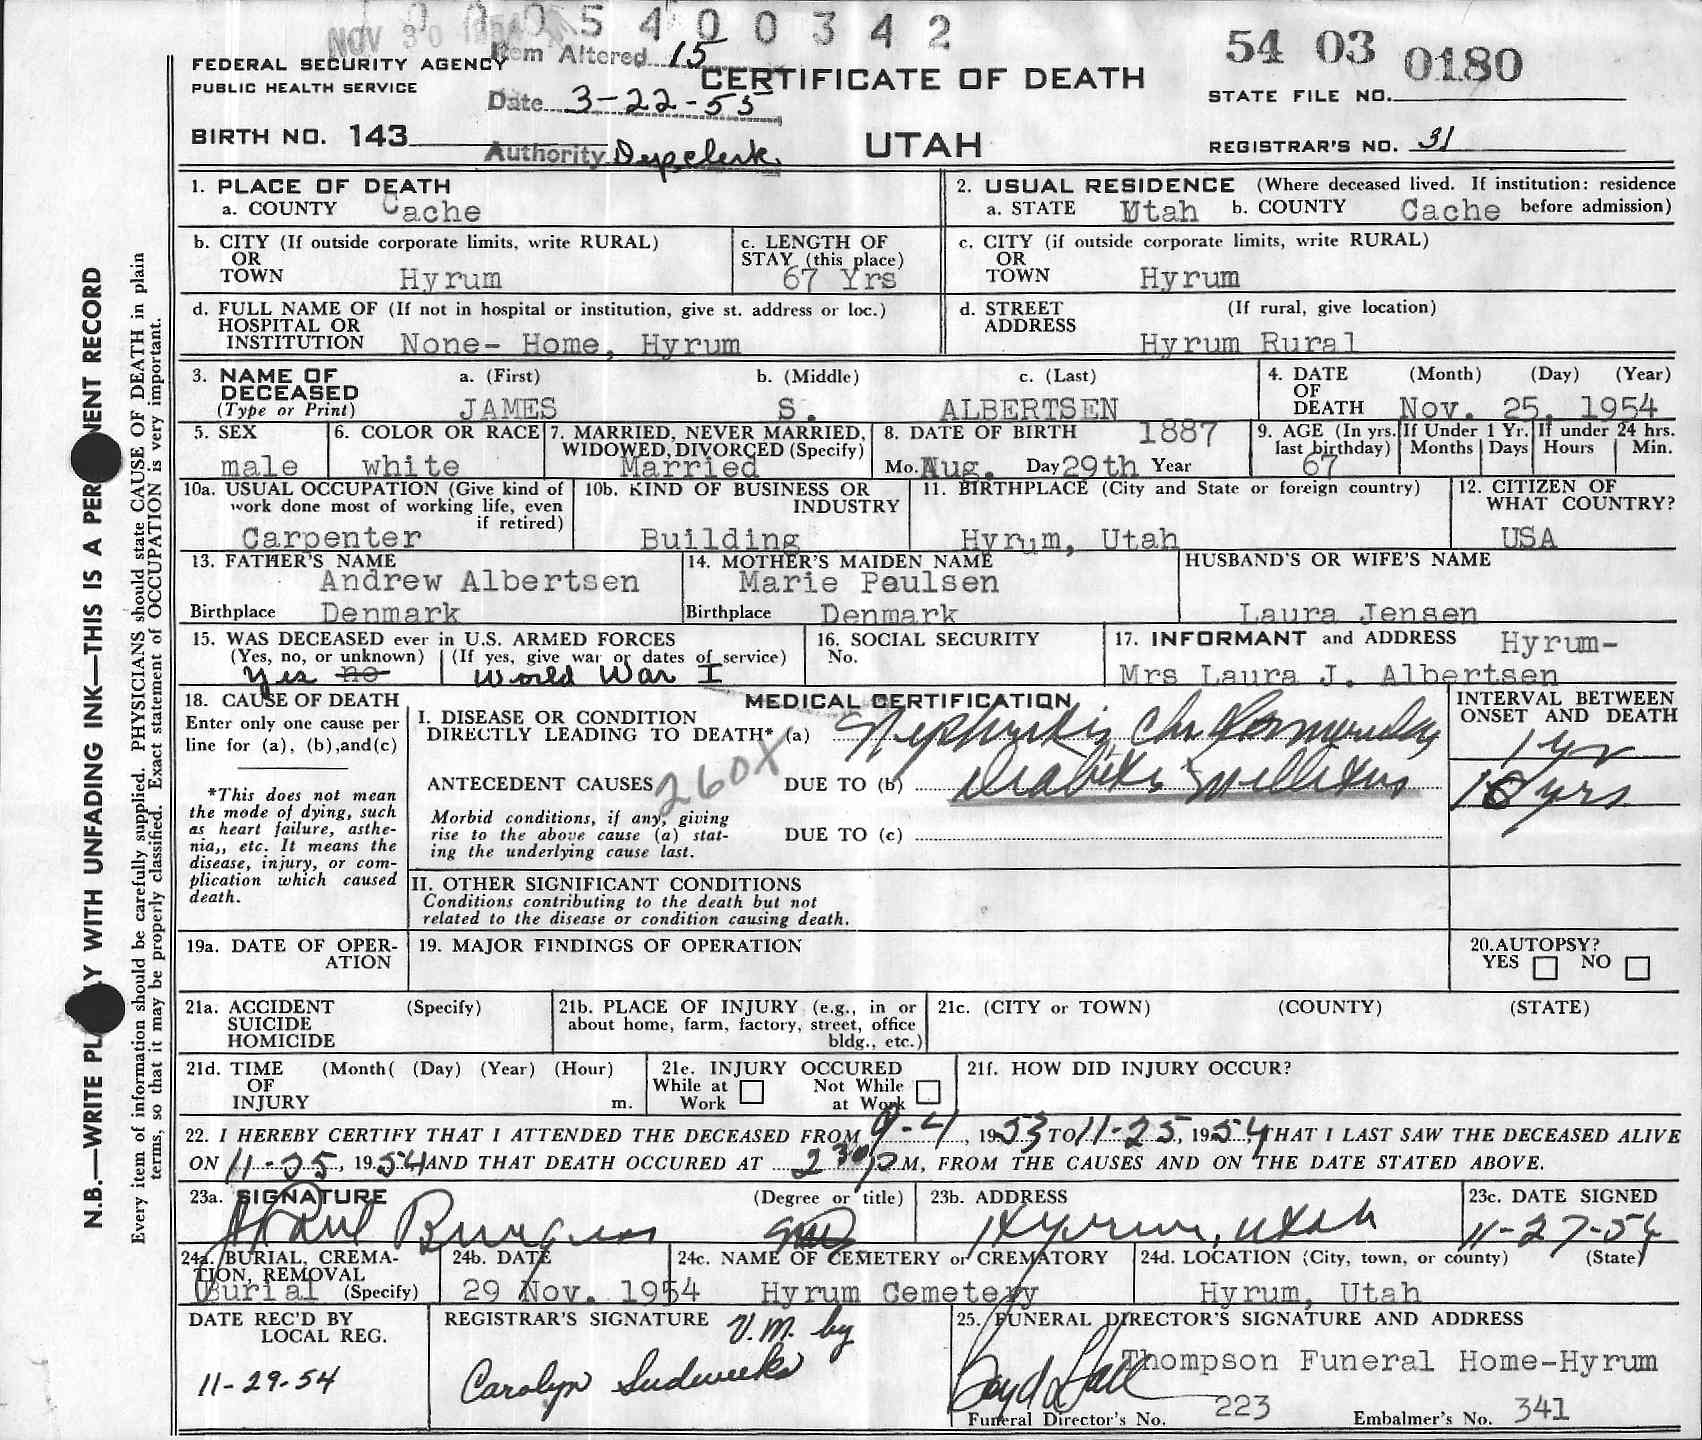 0 0 5 4 0 0 3 4 2
NOV 30 1954
Item Altered 15
54 03 0180
FEDERAL SECURITY AGENCY
PUBLIC HEALTH SERVICE
CERTIFICATE OF DEATH
STATE FILE NO.
Date 3-22-55
BIRTH NO. 143
Authority Dep clerk
UTAH
REGISTRAR'S NO. 31
1. PLACE OF DEATH
a. COUNTY Cache
2. USUAL RESIDENCE (Where deceased lived. If institution: residence before admission)
a. STATE Utah b. COUNTY Cache
b. CITY (If outside corporate limits, write RURAL)
OR
TOWN Hyrum
c. LENGTH OF
STAY (this place)
67 Yrs
c. CITY (if outside corporate limits, write RURAL)
OR
TOWN Hyrum
d. FULL NAME OF (If not in hospital or institution, give st. address or loc.)
HOSPITAL OR
INSTITUTION None- Home, Hyrum
d. STREET (If rural, give location)
ADDRESS
Hyrum Rural
3. NAME OF
DECEASED
(Type or Print)
a. (First) b. (Middle) c. (Last)
JAMES S. ALBERTSEN
4. DATE (Month) (Day) (Year)
OF
DEATH Nov. 25, 1954
5. SEX
male
6. COLOR OR RACE
white
7. MARRIED, NEVER MARRIED,
WIDOWED, DIVORCED (Specify)
Married
8. DATE OF BIRTH 1887
Mo. Aug. Day 29th Year
9. AGE (In yrs.
last birthday)
67
If Under 1 Yr.
Months Days
If under 24 hrs.
Hours Min.
10a. USUAL OCCUPATION (Give kind of
work done most of working life, even
if retired)
Carpenter
10b. KIND OF BUSINESS OR
INDUSTRY
Building
11. BIRTHPLACE (City and State or foreign country)
Hyrum, Utah
12. CITIZEN OF
WHAT COUNTRY?
USA
13. FATHER'S NAME
Andrew Albertsen
Birthplace Denmark
14. MOTHER'S MAIDEN NAME
Marie Poulsen
Birthplace Denmark
HUSBAND'S OR WIFE'S NAME
Laura Jensen
15. WAS DECEASED ever in U.S. ARMED FORCES
(Yes, no, or unknown) (If yes, give war or dates of service)
Yes no World War I
16. SOCIAL SECURITY
No.
17. INFORMANT and ADDRESS Hyrum-
Mrs Laura J. Albertsen
18. CAUSE OF DEATH
Enter only one cause per
line for (a), (b),and(c)
*This does not mean
the mode of dying, such
as heart failure, asthe-
nia,, etc. It means the
disease, injury, or com-
plication which caused
death.
MEDICAL CERTIFICATION
I. DISEASE OR CONDITION
DIRECTLY LEADING TO DEATH* (a) Nephritis Chr
ANTECEDENT CAUSES 260X DUE TO (b) Diabetes Mellitus
Morbid conditions, if any, giving
rise to the above cause (a) stat-
ing the underlying cause last.
DUE TO (c)
INTERVAL BETWEEN
ONSET AND DEATH
1 yr
yrs
II. OTHER SIGNIFICANT CONDITIONS
Conditions contributing to the death but not
related to the disease or condition causing death.
19a. DATE OF OPER-
ATION
19. MAJOR FINDINGS OF OPERATION
20.AUTOPSY?
YES NO
21a. ACCIDENT (Specify)
SUICIDE
HOMICIDE
21b. PLACE OF INJURY (e.g., in or
about home, farm, factory, street, office
bldg., etc.)
21c. (CITY or TOWN) (COUNTY) (STATE)
21d. TIME (Month( (Day) (Year) (Hour)
OF
INJURY m.
21e. INJURY OCCURED
While at Work Not While at Work
21f. HOW DID INJURY OCCUR?
22. I HEREBY CERTIFY THAT I ATTENDED THE DECEASED FROM 9-4, 1953 TO 11-25, 1954, THAT I LAST SAW THE DECEASED ALIVE
ON 11-25, 1954 AND THAT DEATH OCCURED AT 2 30 P M, FROM THE CAUSES AND ON THE DATE STATED ABOVE.
23a. SIGNATURE (Degree or title)
Paul Burgess MD
23b. ADDRESS
Hyrum, Utah
23c. DATE SIGNED
11-27-54
24a. BURIAL, CREMA-
TION, REMOVAL
Burial (Specify)
24b. DATE
29 Nov. 1954
24c. NAME OF CEMETERY or CREMATORY
Hyrum Cemetery
24d. LOCATION (City, town, or county) (State)
Hyrum, Utah
DATE REC'D BY
LOCAL REG.
11-29-54
REGISTRAR'S SIGNATURE V.M. by
Carolyn Sudweeks
25. FUNERAL DIRECTOR'S SIGNATURE AND ADDRESS
Boyd Hall Thompson Funeral Home-Hyrum
Funeral Director's No. 223 Embalmer's No. 341
N.B.—WRITE PL Y WITH UNFADING INK—THIS IS A PER NENT RECORD
Every item of information should be carefully supplied. PHYSICIANS should state CAUSE OF DEATH in plain
terms, so that it may be properly classified. Exact statement of OCCUPATION is very important.